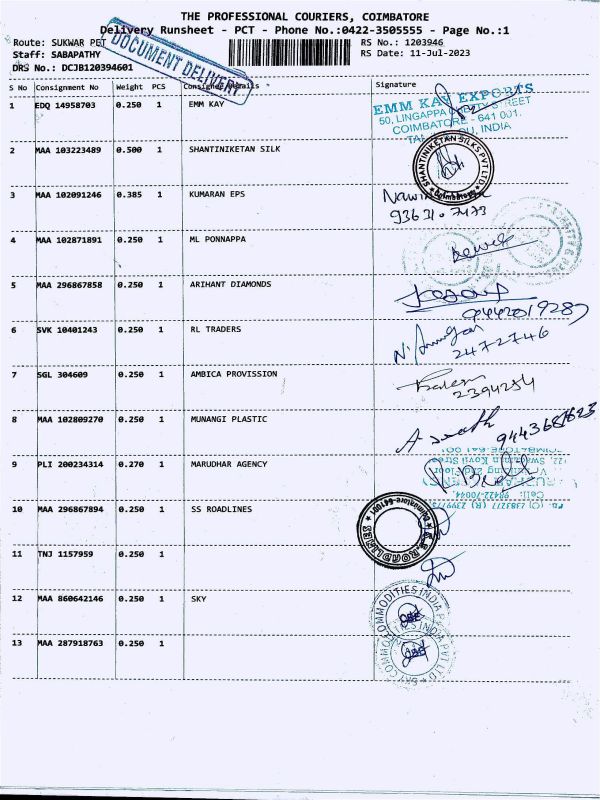 THE PROFESSIONAL COURIERS, COIMBATORE
Delivery Runsheet - PCT - Phone No.:0422-3505555 - Page No.:1
Route: SUKWAR PET
RS No.: 1203946
Staff: SABAPATHY
RS Date: 11-Jul-2023
DRS No.: DCJB120394601
DOCUMENT DELIVERY
S No Consignment No Weight PCS Consignee Details Signature
1 EDQ 14958703 0.250 1 EMM KAY
EMM KAY EXPORTS
50, LINGAPPA CHETTY STREET
COIMBATORE - 641 001.
INDIA
2 MAA 103223489 0.500 1 SHANTINIKETAN SILK
SHANTINIKETAN SILKS PVT LTD
Coimbatore
3 MAA 102091246 0.385 1 KUMARAN EPS
4 MAA 102871891 0.250 1 ML PONNAPPA
5 MAA 296867858 0.250 1 ARIHANT DIAMONDS
9442019287
6 SVK 10401243 0.250 1 RL TRADERS
2472746
7 SGL 304609 0.250 1 AMBICA PROVISSION
2394254
8 MAA 102809270 0.250 1 MUNANGI PLASTIC
9 PLI 200234314 0.270 1 MARUDHAR AGENCY
Cell: 98422-70044
10 MAA 296867894 0.250 1 SS ROADLINES
S.S. ROADLINES
Coimbatore 641001
11 TNJ 1157959 0.250 1
12 MAA 860642146 0.250 1 SKY
SKY COMMODITIES INDIA PVT LTD
13 MAA 287918763 0.250 1
SKY COMMODITIES INDIA PVT LTD